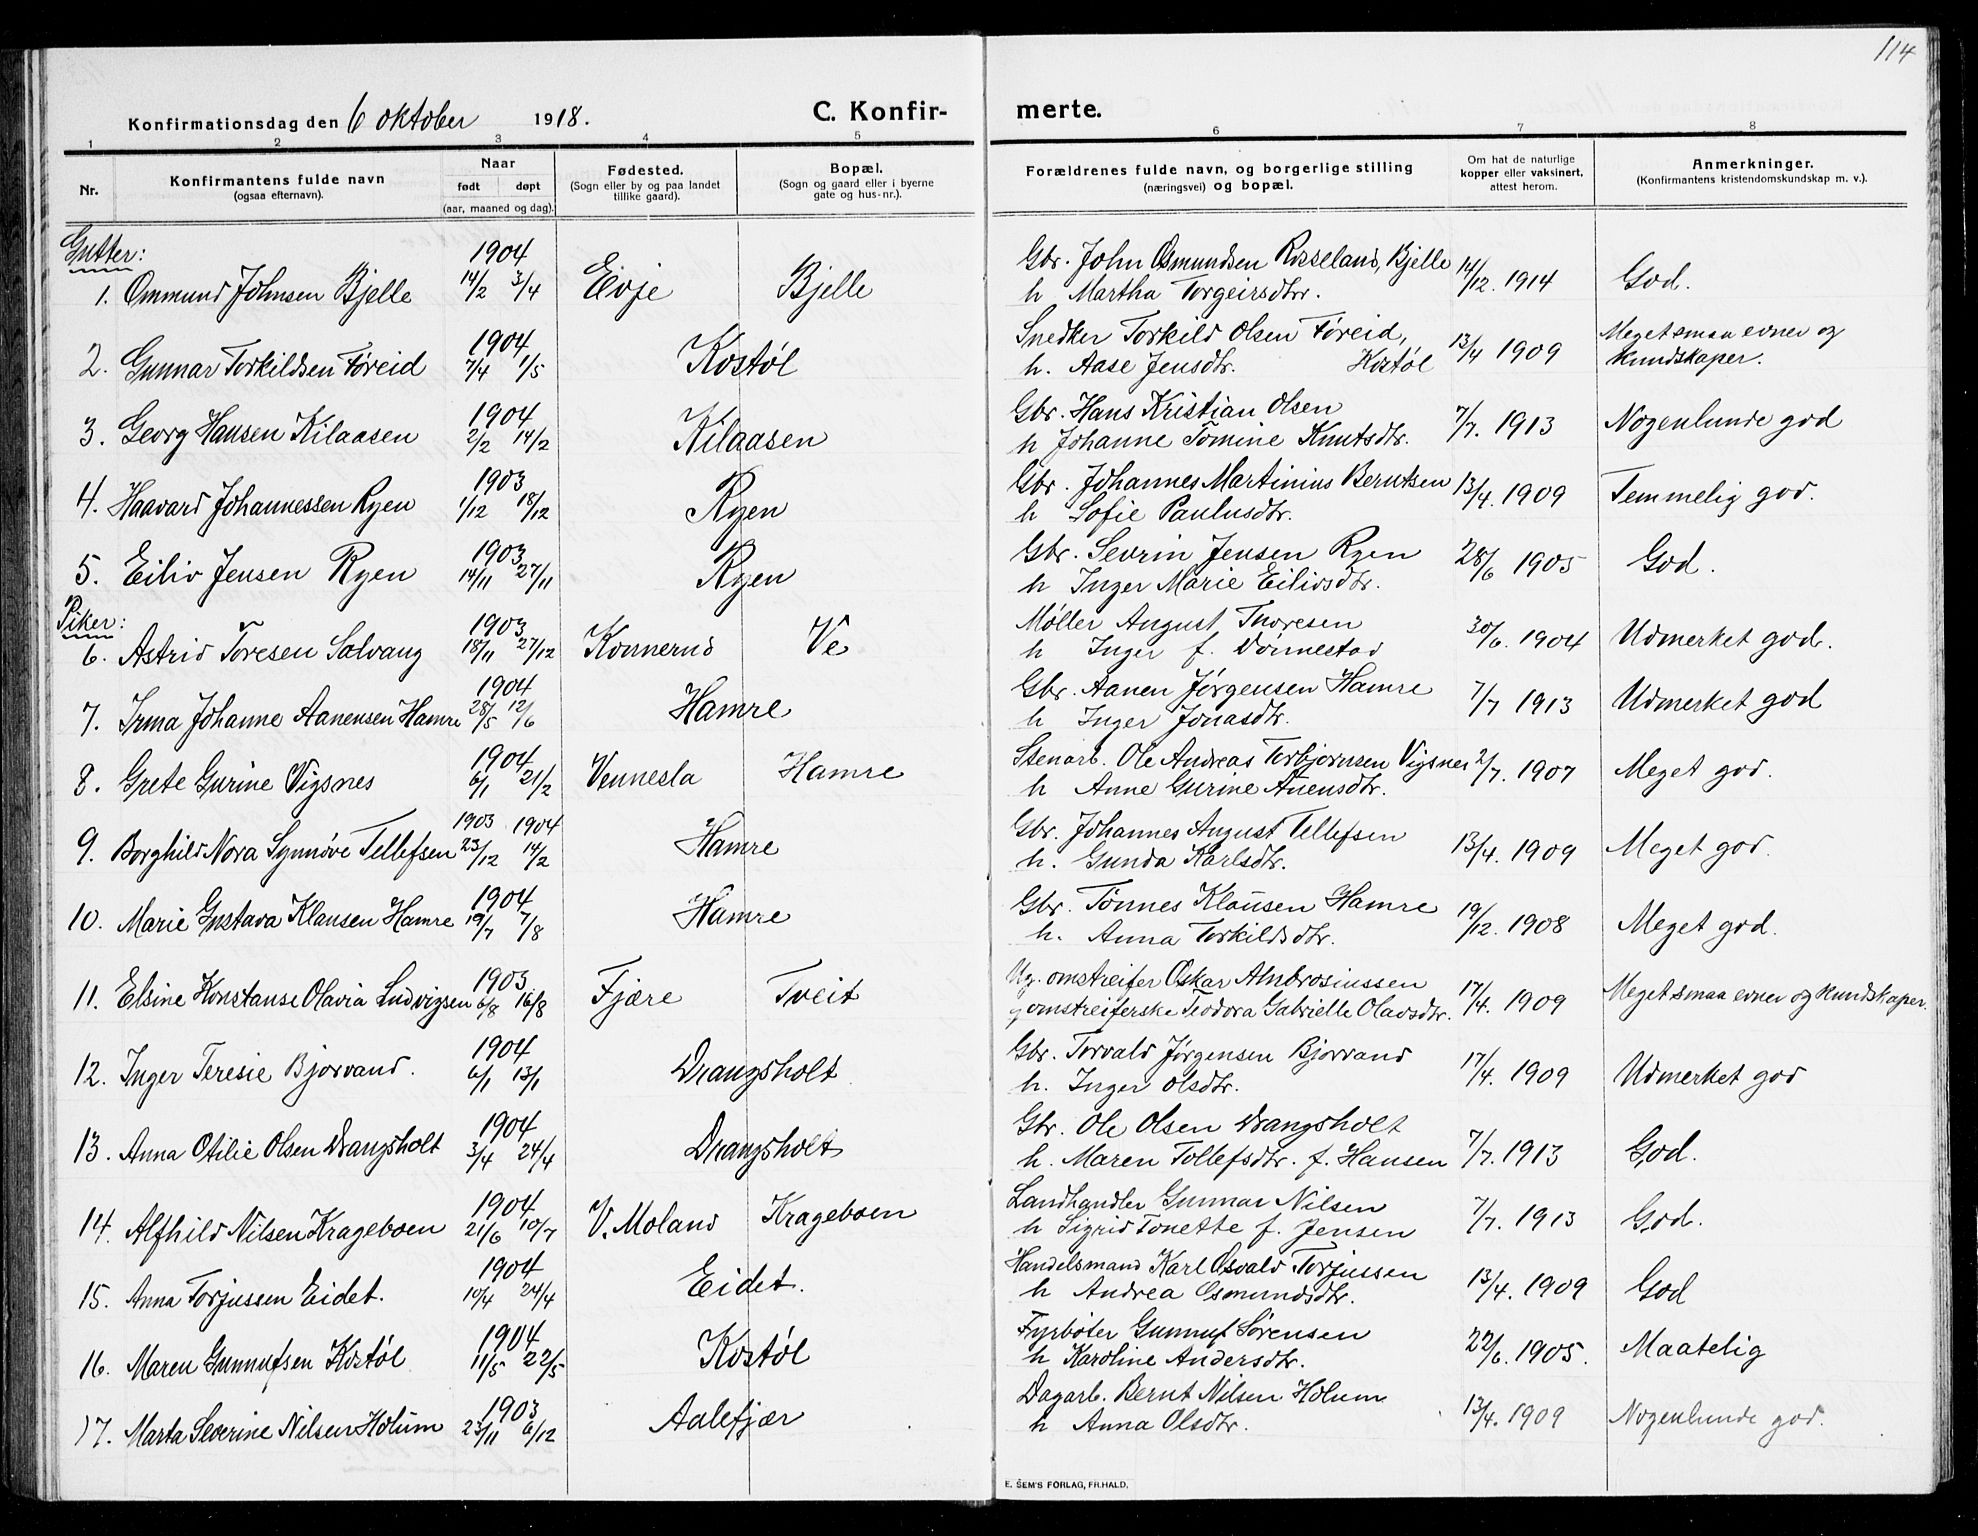 114
Konfirmationsdag den 6 oktober 1918. C. Konfirmerte.
1 2 3 4 5 6 7 8
Nr. Konfirmantens fulde navn (ogsaa efternavn). Naar født døpt (aar, maaned og dag). Fødested. (Sogn eller by og paa landet tillike gaard). Bopæl. (Sogn og gaard eller i byerne gate og hus-nr.). Forældrenes fulde navn, og borgerlige stilling (næringsvei) og bopæl. Om hat de naturlige kopper eller vaksinert, attest herom. Anmerkninger. (Konfirmantens kristendomskundskap m. v.).
Gutter:
1. Ommund Johnsen Bjelle 1904 14/2 3/4 Evje Bjelle Gbr. John Osmundsen Rosseland, Bjelle h Martha Torgeirsdtr. 14/12. 1914 God.
2. Gunnar Torkildsen Føreid 1904 7/4 1/5 Kostøl Snedker Torkild Olsen Føreid, h. Aase Jensdtr. Kostøl 13/4 1909 Meget smaa evner og kundskaper.
3. Georg Hansen Kilaasen 1904 2/2 14/2 Kilaasen Gbr. Hans Kristian Olsen h Johanne Tomine Knutsdtr. 7/7. 1913 Nogenlunde god
4. Haavard Johannessen Ryen 1903 1/12 18/12 Ryen Gbr. Johannes Martinius Berntsen h Sofie Paulusdtr. 13/4. 1909 Temmelig god.
5. Eiliv Jensen Ryen 1903 14/11 27/11 Ryen Gbr. Sevrin Jensen Ryen h Inger Marie Eilivsdtr. 28/6 1905 God.
Piker:
6. Astrid Toresen Solvang 1903 18/11 27/12 Konnerud Ve Møller August Thoresen h Inger f. Dønnestad 30/6. 1904 Udmerket god.
7. Irma Johanne Aanensen Hamre 1904 28/5 12/6 Hamre Gbr. Aanen Jørgensen Hamre h Inger Jonasdtr. 7/7 1913 Udmerket god
8. Grete Gurine Vigsnes 1904 6/1 21/2 Vennesla Hamre Stenarb. Ole Andreas Torbjørnsen Vigsnes h Anne Gurine Anensdtr. 2/7. 1907 Meget god.
9. Borghild Nora Synnøve Tellefsen 1903 23/12 1904 14/2 Hamre Gbr. Johannes August Tellefsen h. Gunda Karlsdtr. 13/4. 1909 Meget god.
10. Marie Gustava Klausen Hamre 1904 19/7 7/8 Hamre Gbr. Tønnes Klausen Hamre h. Anna Torkildsdtr. 19/12. 1908 Meget god.
11. Elsine Konstanse Olavia Ludvigsen 1903 6/8 16/8 Fjære Tveit Ug. omstreifer Oskar Ambrosiussen og omstreiferske Teodora Gabrielle Olavsdtr. 17/4. 1909 Meget smaa evner og kundskaper.
12. Inger Teresie Bjorvand. 1904 6/1 13/1 Drangsholt Gbr. Torvald Jørgensen Bjorvand h. Inger Olsdtr. 17/4. 1909 Udmerket god
13. Anna Otilie Olsen Drangsholt 1904 3/4 24/4 Drangsholt Gbr. Ole Olsen Drangsholt h. Maren Tollefsdtr. f. Hansen 7/7. 1913 God.
14. Alfhild Nilsen Krageboen 1904 21/6 10/7 V. Moland Krageboen Landhandler Gunnar Nilsen h Sigrid Tonette f. Jensen 7/7. 1913 God.
15. Anna Torjussen Eidet. 1904 10/4 24/4 Eidet. Handelsmand Karl Osvald Torjussen h Andrea Osmundsdtr. 13/4. 1909 God
16. Maren Gunnufsen Kostøl 1904 11/5 22/5 Kostøl Fyrbøter Gunnuf Sørensen h Karoline Andersdtr. 22/6. 1905. Maatelig
17. Marta Severine Nilsen Holum 1903 23/11 6/12 Aalefjær Dagarb. Bernt Nilsen Holum h Anna Olsdtr. 13/4. 1909 Nogenlunde god.
E. SEM'S FORLAG, FR.HALD.